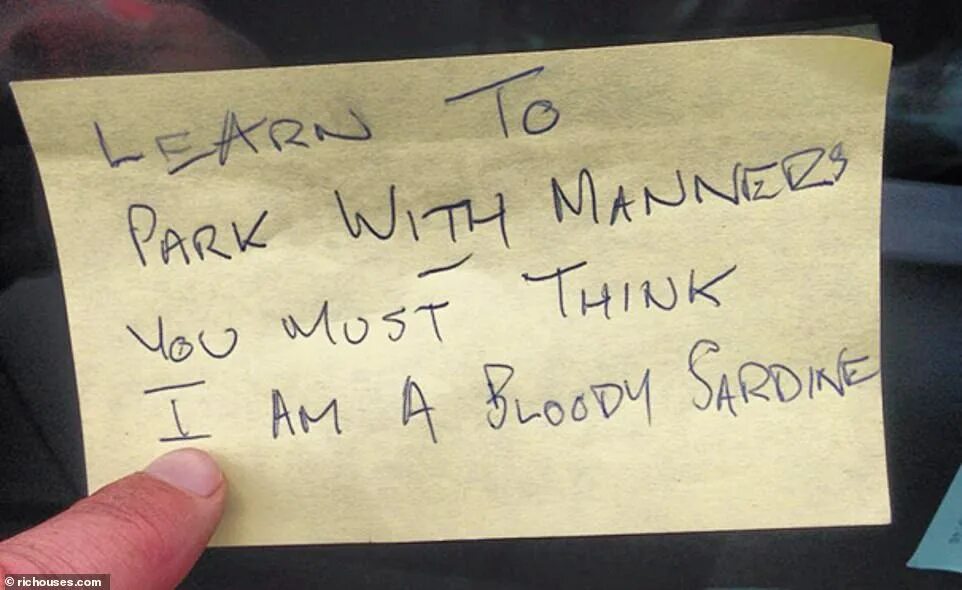 LEARN TO
PARK WITH MANNERS
YOU MUST THINK
I AM A BLOODY SARDINE
© richouses.com